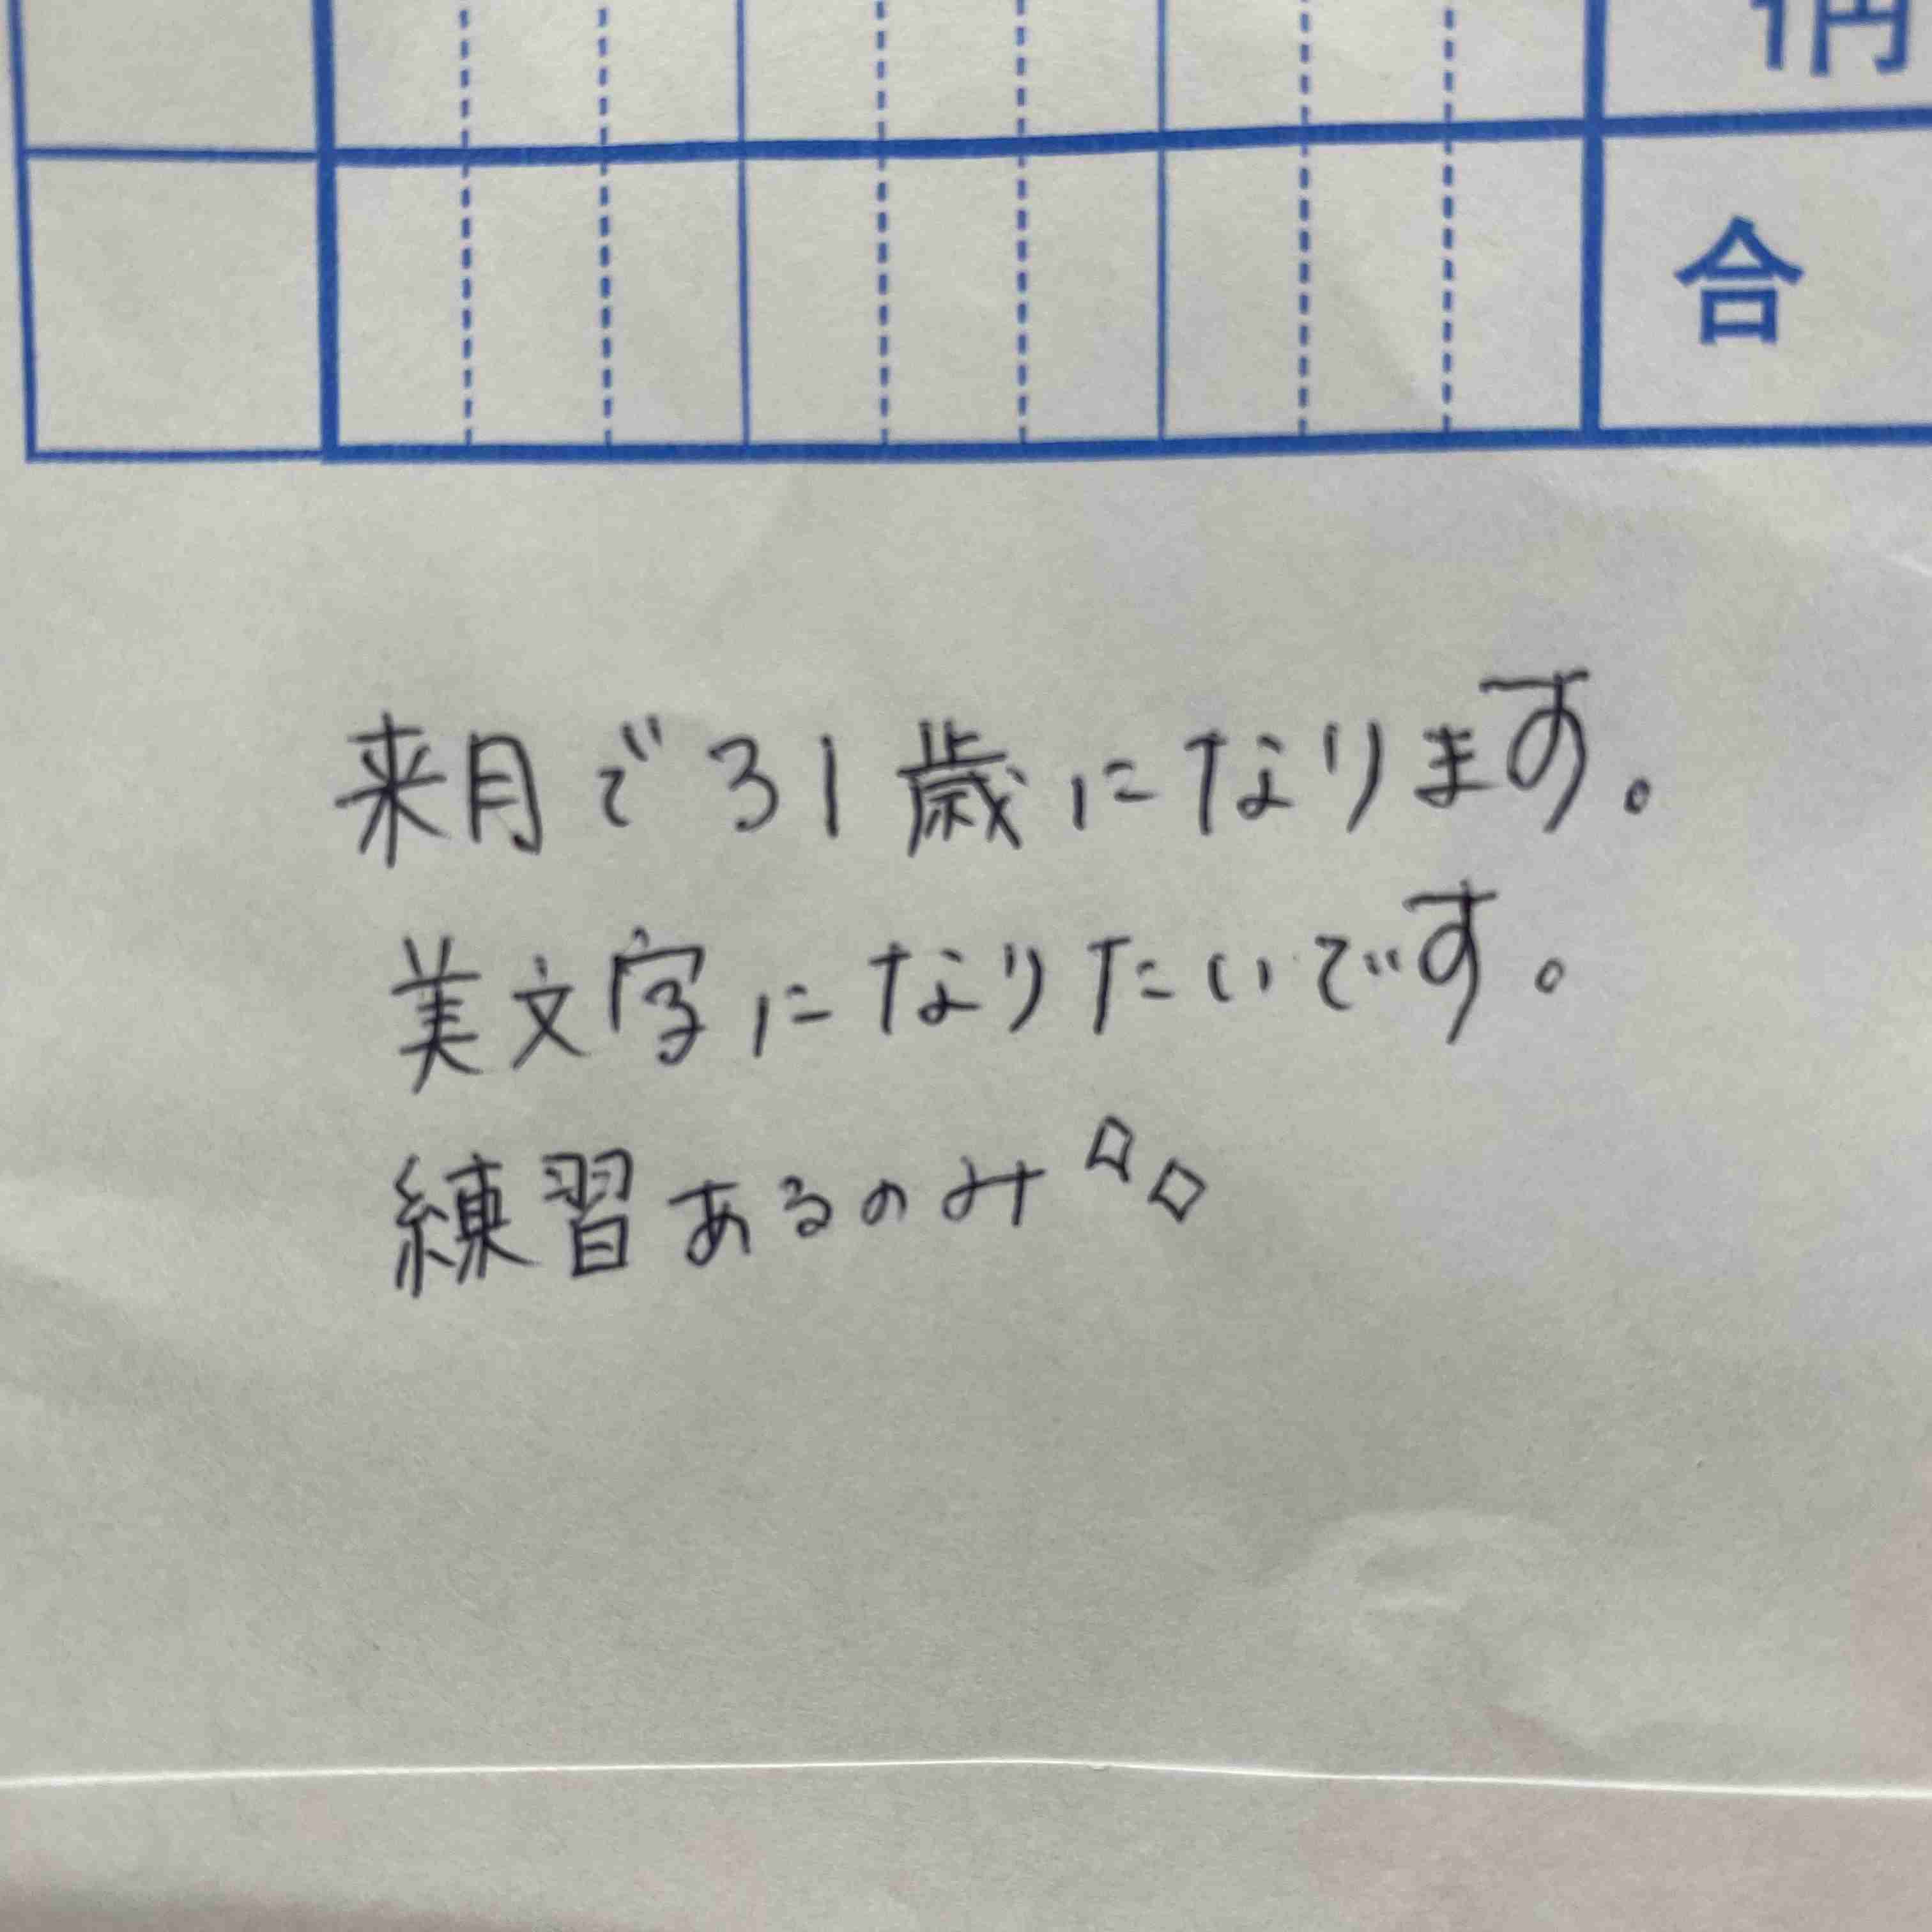 合
来月で31歳になります。
美文字になりたいです。
練習あるのみ